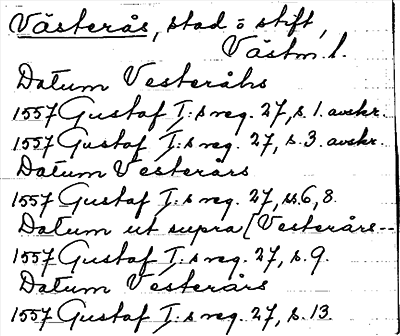 Västerås, stad o stift,
Västm. l.
Datum Vesteråhs
1557 Gustaf I:s reg. 27, s. 1. avskr.
1557 Gustaf I:s reg. 27, s. 3. avskr.
Datum Vesterårs
1557 Gustaf I:s reg. 27, ss. 6, 8.
Datum ut supra [Vesterårs--
1557 Gustaf I:s reg. 27, s. 9.
Datum Vesterårs
1557 Gustaf I:s reg. 27, s. 13